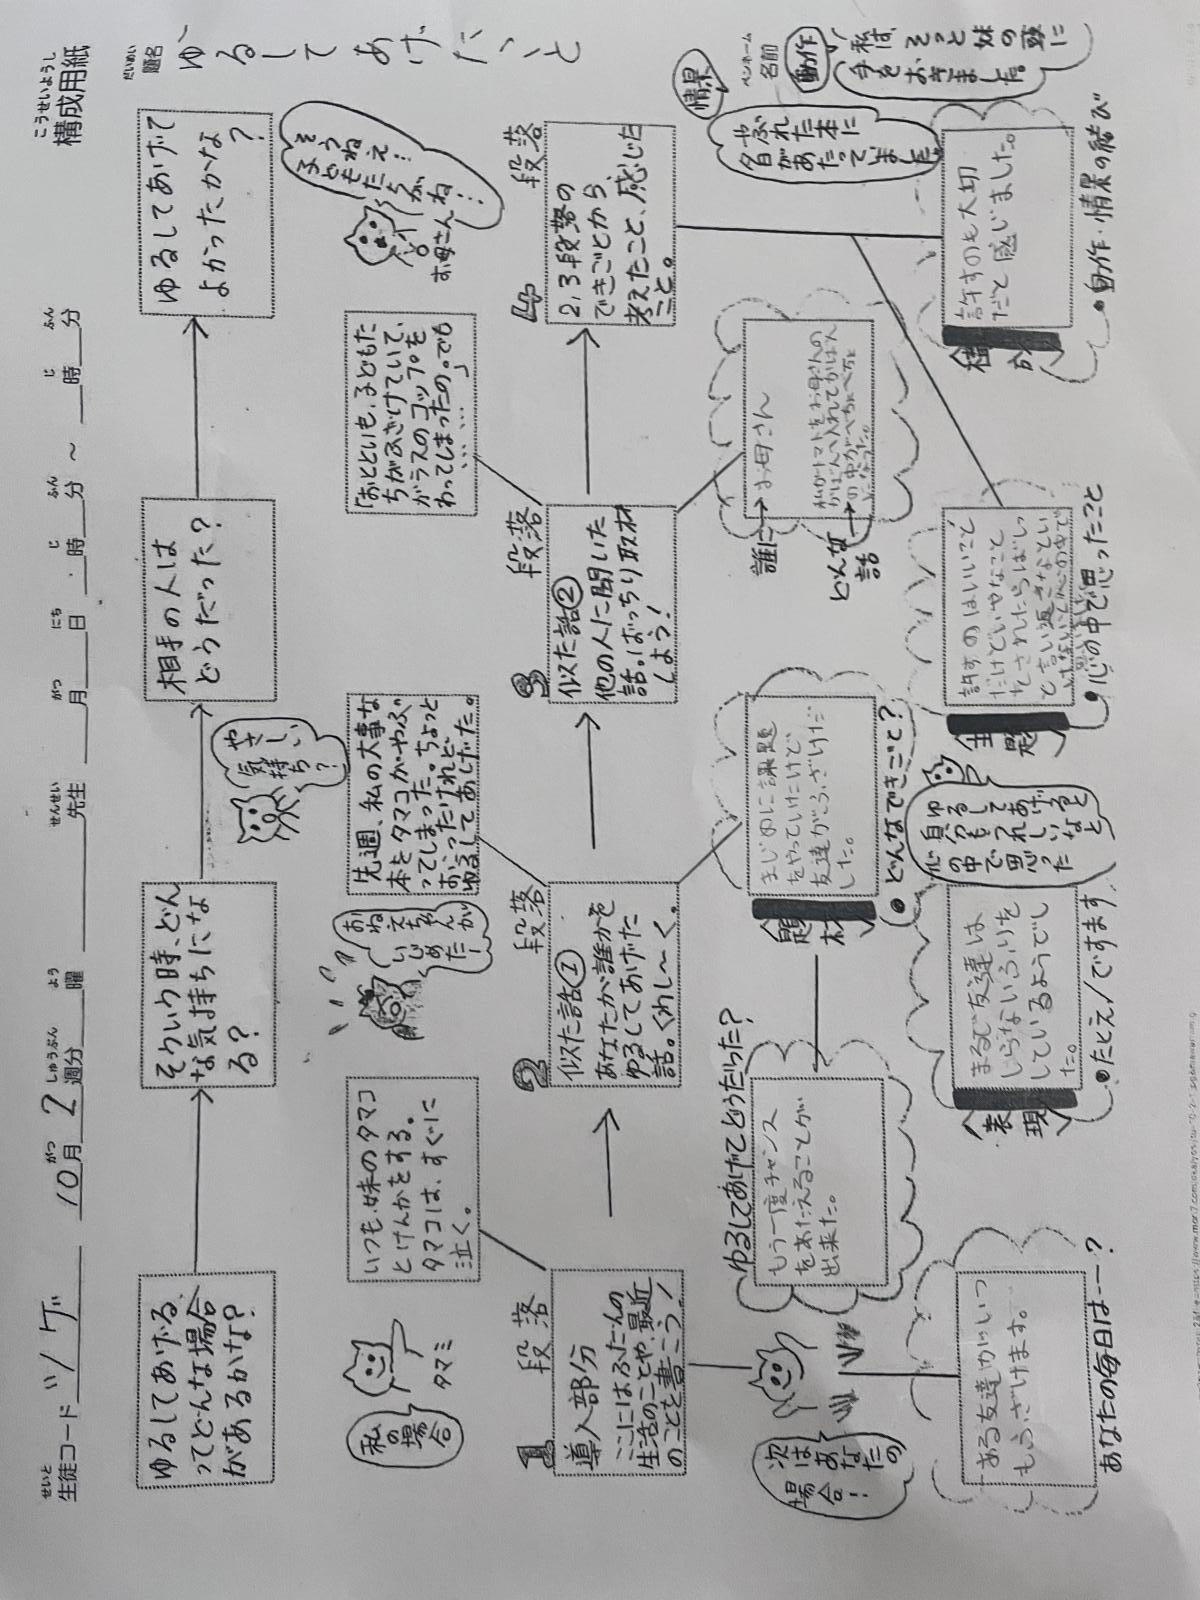 こうせいようし
構成用紙
せいと
生徒コード ツゲ
10月 2週分 曜 先生
がつ しゅうぶん よう せんせい
月 日 時 分 ～ 時 分
がつ にち じ ふん じ ふん
だいめい
題名
ゆるしてあげたこと
ペンネーム
名前
ゆるしてあげる
ってどんな場合
があるかな?
そういう時、どん
な気持ちにな
る?
やさしい
気持ち?
相手の人は
どうだった?
ゆるしてあげて
よかったかな
?
そうねえ!
子どもたちがね!
お母さん
私の
場合
タマミ
いつも、妹のタマコ
とけんかをする。
タマコは、すぐに
泣く。
おねえちゃんが
いじめたー
先週、私の大事な
本をタマコがやぶ
ってしまった。ちょっと
おこったけれど
ゆるしてあげた。
「おとといも、子どもた
ちがふざけていて、
ガラスのコップを
わってしまったの。でも
……」
1段落
導入部分
ここにはふだんの
生活のことや、最近
のことを書こう!
2段落
似た話①
あなたが誰かを
ゆるしてあげた
話。くわし〜く。
3段落
似た話②
他の人に聞いた
話。ばっちり取材
しよう!
4段落
2,3段落の
できごとから
考えたこと、感じた
こと。
次は
あなたの
場合!
ある友達がいつ
もふざけます。
あなたの毎日は——?
ゆるしてあげてどうだった?
もう一度チャンス
をあたえることが
出来た。
題材
まじめに課題
をやっていたけど
友達がふざけだ
した。
●どんなできごと?
表現
まるで友達は
しらないふりを
しているようでし
た。
●たとえ/ですます
ゆるしてあげると
自分もうれしいなと
心の中で思った
誰に→お母さん
どんな話→
私がトマトをお母さんの
かばんへ入れてかばん
の中がべちゃべちゃ
になった。
主題
許すのはいいこと
だけどいやなこと
をされたらばい
●心の中で思ったこと
情景
やぶれた本に
夕日があたっていました。
動作
私は、
そっと妹の頭に
手をおきました。
構成
許すのも大切
だと感じました。
●動作・情景の結び